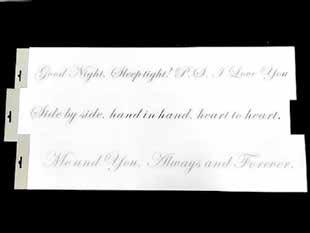 Good Night, Sleeptight! P.S. I Love You
Side by side, hand in hand, heart to heart.
Me und You, Always and Forever.